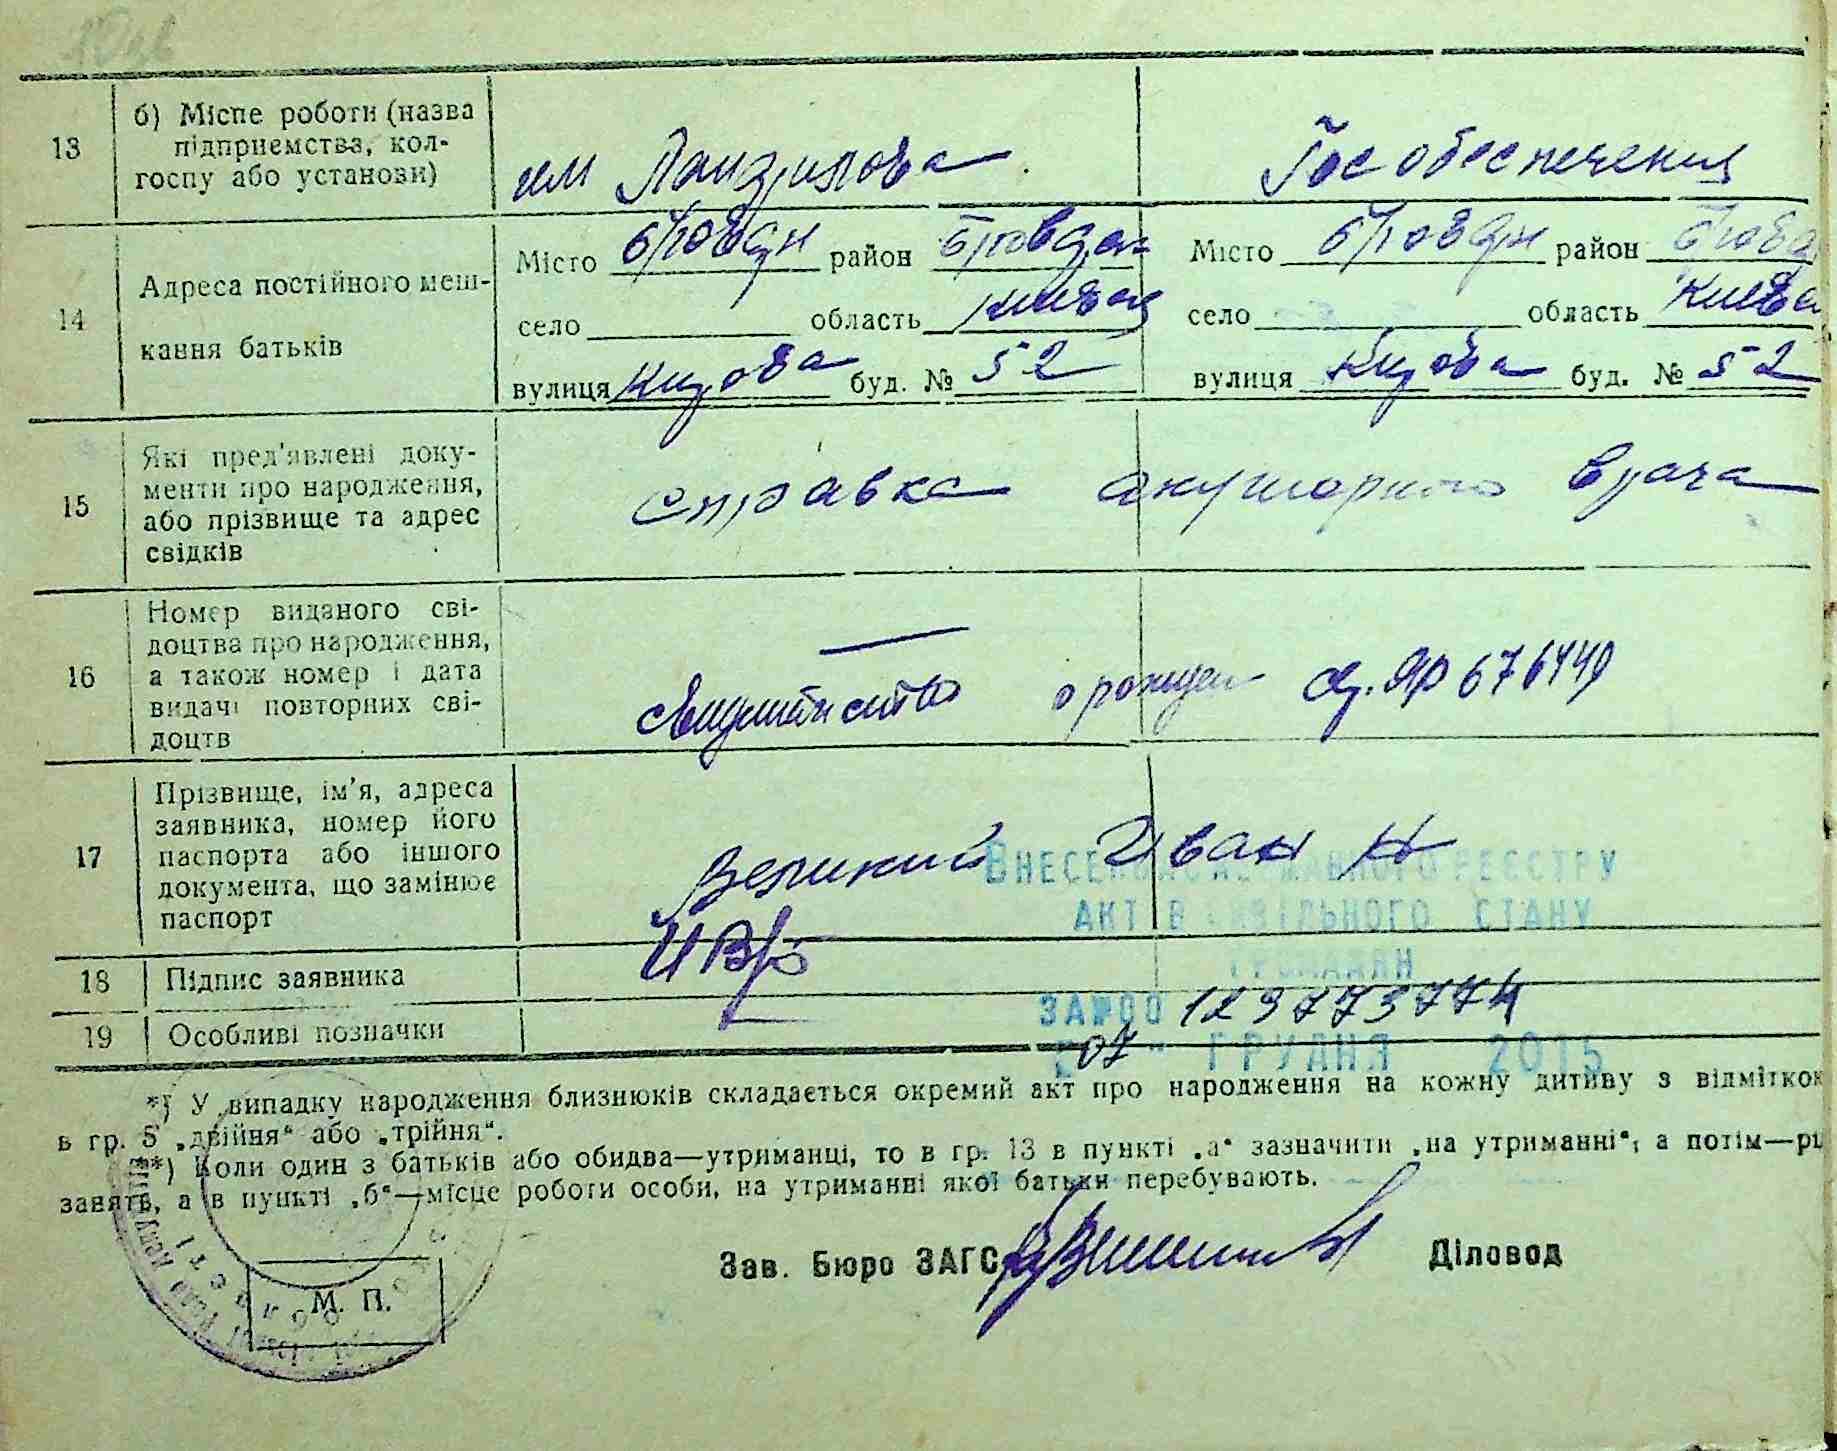 13
б) Місце роботи (назва
підприємства, кол-
госпу або установи)
им
Гособеспечения
14
Адреса постійного меш-
кання батьків
Місто Бровари район Міато Бровари район
село область Киевск село область Киевс
вулиця Кирова буд. № 52 вулиця Кирова буд. № 52
15
Які пред'явлені доку-
менти про народження,
або прізвище та адрес
свідків
справка врача
16
Номер виданого сві-
доцтва про народження,
а також номер і дата
видачі повторних сві-
доцтв
свидетельство о рожден 676449
17
Прізвище, ім'я, адреса
заявника, номер його
паспорта або іншого
документа, що замінює
паспорт
Великий Иван И
ВНЕСЕНО ДО ДЕРЖАВНОГО РЕЄСТРУ
АКТІВ ЦИВІЛЬНОГО СТАНУ
ГРОМАДЯН
18
Підпис заявника
ЗА №00 123773774
19
Особливі позначки
07 ГРУДНЯ 2015
*) У випадку народження близнюків складається окремий акт про народження на кожну дитину з відміткою
в гр. 5 „двійня“ або „трійня“.
**) Коли один з батьків або обидва—утриманці, то в гр. 13 в пункті „а“ зазначити „на утриманні“, а потім—рі
занять, а в пункті „б“—місце роботи особи, на утриманні якої батьки перебувають.
Зав. Бюро ЗАГС Діловод
М. П.